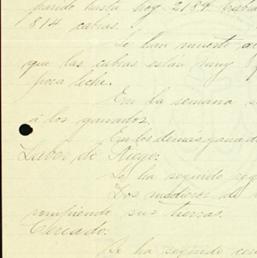 hasta hoy 2189
814 cabras.
Se han muerto
que las cabras estan muy
poca leche.
En la semana
á los ganados.
En los demás
Labor de Riego:
Se ha seguido
Los medieros
sus tierras.
Cercado:
Se ha seguido